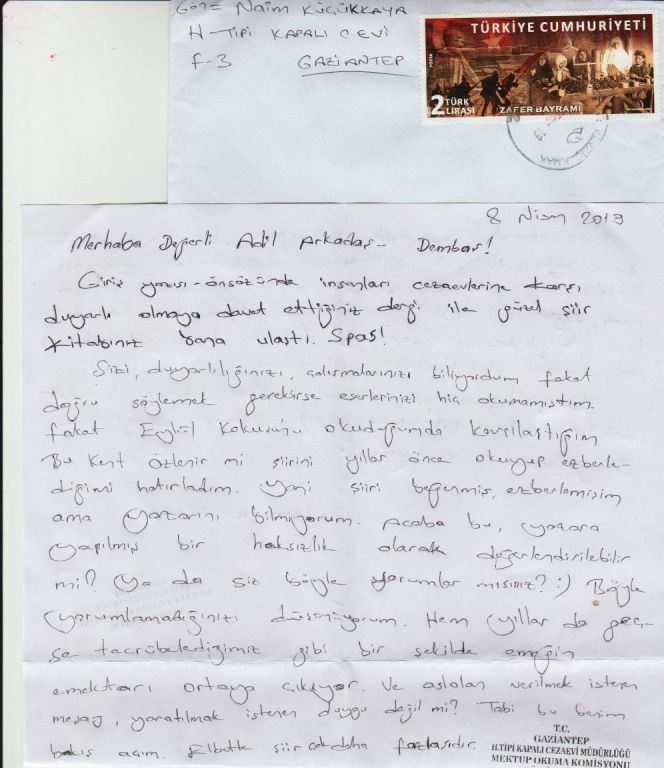 Gön= Naim Küçükkaya
H-Tipi Kapalı Cevi
F-3 GAZİANTEP
TÜRKİYE CUMHURİYETİ
POSTA
2 TÜRK LİRASI
ZAFER BAYRAMI
8 Nisan 2019
Merhaba Değerli Adil Arkadaş- Dembaş!
Giriş yazısı-önsözünde insanları cezaevlerine karşı
duyarlı olmaya davet ettiğiniz dergi ile güzel şiir
kitabınız bana ulaştı. Spas!
Sizi, duyarlılığınızı, çalışmalarınızı biliyordum fakat
doğru söylemek gerekirse eserlerinizi hiç okumamıştım.
fakat Eylül Kokusu'nu okuduğumda karşılaştığım
Bu Kent Özlenir mi şiirini yıllar önce okuyup ezberle-
diğimi hatırladım. Yani şiiri beğenmiş, ezberlemişim
ama yazarını bilmiyorum. Acaba bu, yazara
yapılmış bir haksızlık olarak değerlendirilebilir
mi? Ya da siz böyle yorumlar mısınız? :) Böyle
yorumlamadığınızı düşünüyorum. Hem yıllar da geç-
se tecrübelediğimiz gibi bir şekilde emeğin
emektarı ortaya çıkıyor. Ve aslolan verilmek istenen
mesaj, yaratılmak istenen duygu değil mi? Tabi bu benim
bakış açım. Elbette şiir çok daha fazlasıdır.
T.C.
GAZİANTEP
H.TİPİ KAPALI CEZAEVİ MÜDÜRLÜĞÜ
MEKTUP OKUMA KOMİSYONU